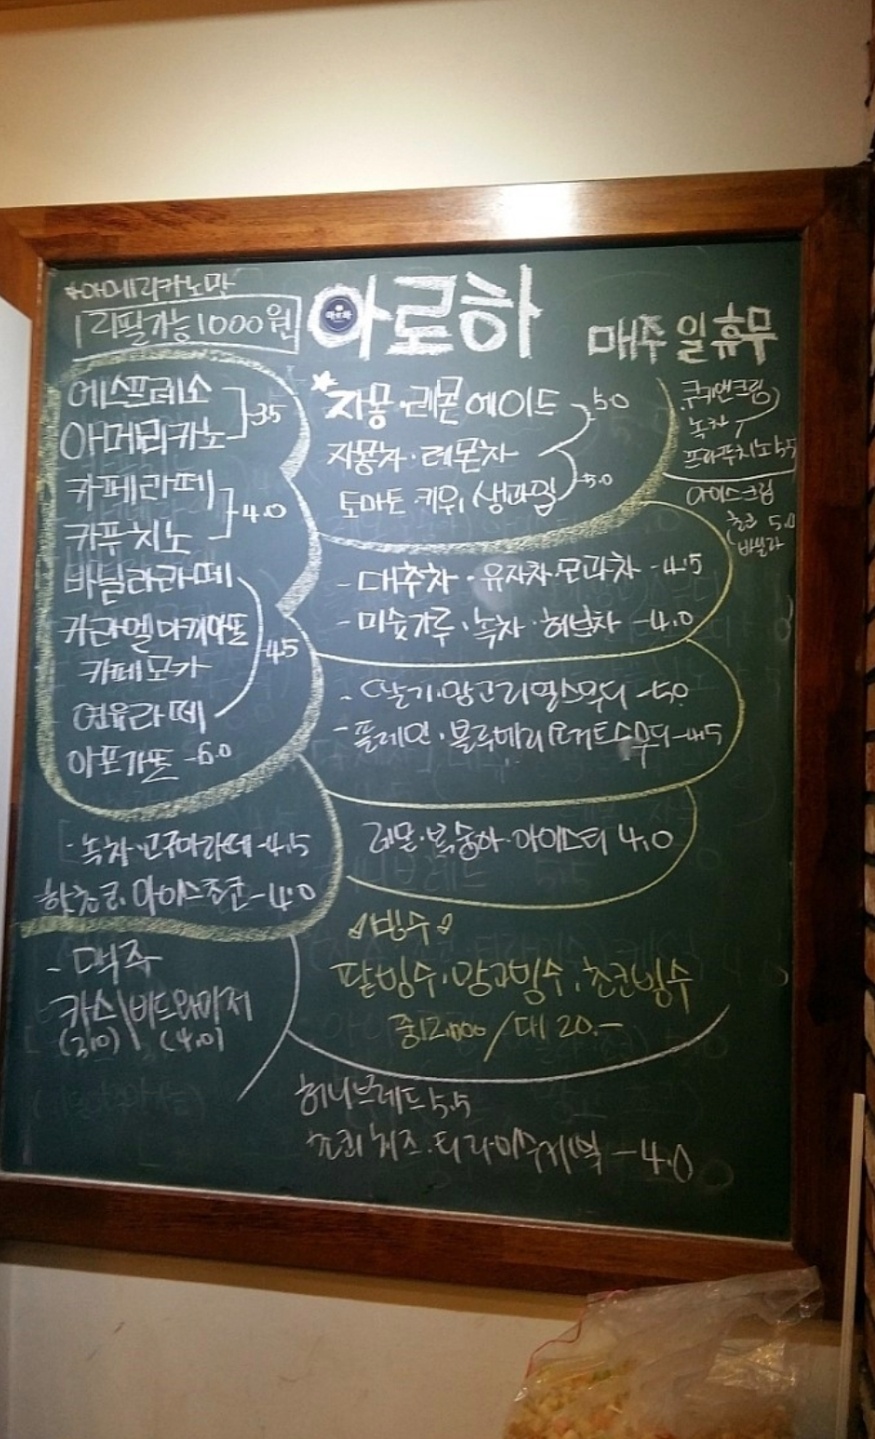 *아메리카노만
리필가능 1000원
아로하
매주 일 휴무
에스프레소
아메리카노 -3.5
카페라떼
카푸치노 -4.0
바닐라라떼
카라멜마끼아또
카페모카 -4.5
연유라떼
아포가또 -6.0
- 녹차·고구마라떼 -4.5
핫초코. 아이스초코 -4.0
- 맥주
카스\버드와이저
(3.0) (4.0)
자몽·레몬에이드 -5.0
자몽차·레몬차
토마토·키위 생과일 -5.0
쿠키앤크림
녹차
프라푸치노 5.5
아이스크림
초코 5.0
바닐라
- 대추차·유자차·모과차 -4.5
- 미숫가루·녹차·허브차 -4.0
- 딸기·망고리얼스무디 -5.0
- 플레인·블루베리요거트스무디 -4.5
레몬·복숭아·아이스티 4.0
빙수
팥빙수·망고빙수·초코빙수
중12.000 / 대 20.-
허니브레드 5.5
초코 치즈·티라미수케익 -4.0